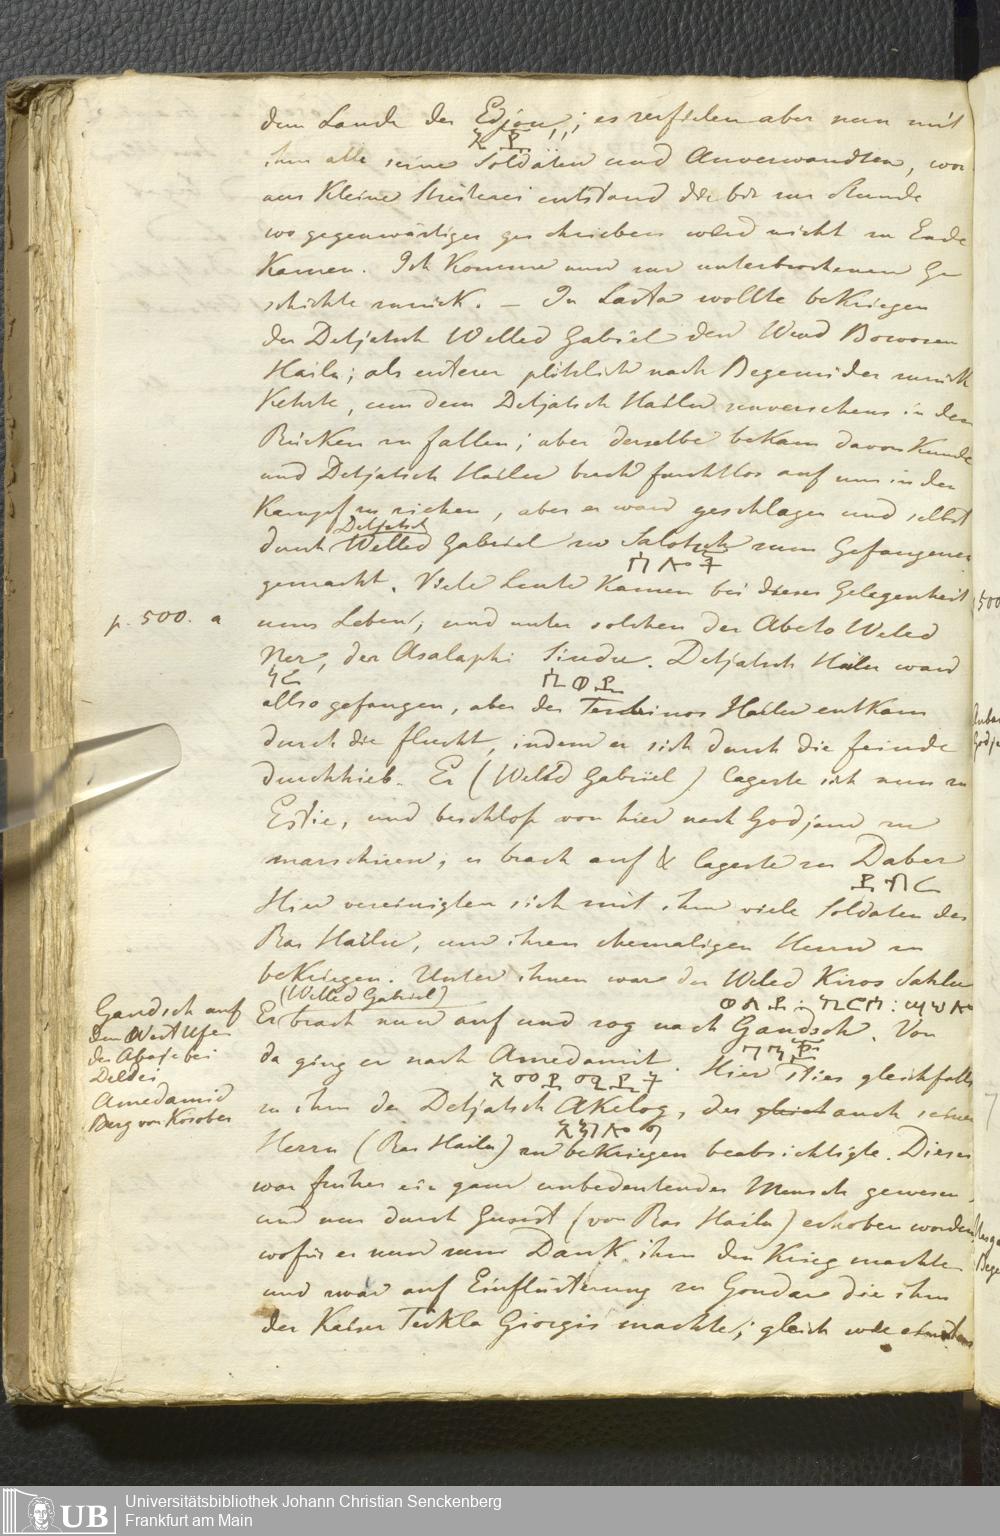 dem Lande der Edjou,; es verfielen aber nun mit
እጁ
ihm alle seine Soldaten und Anverwandten, wor
aus kleine Streiterei entstand die bis zur Stunde
wo gegenwärtiges geschrieben wird nicht zu Ende
kamen. Ich komme nun zur unterbrochenen Ge
schichte zurück. – In Lasta wollte bekriegen
der Detjatsch Welled Gabriel den Wend Bowosen
Hailu; als ersterer plötzlich nach Begemider zurück
kehrte, um dem Detjatsch Hailu unversehens in den
Rücken zu fallen; aber derselbe bekam davon Kunde
und Detjatsch Hailu brach furchtlos auf um in den
Kampf zu ziehen, aber er ward geschlagen und selbst
Detjatsch
durch Welled Gabriel zu Salotsch zum Gefangenen
gemacht. Viele Leute kamen bei dieser Gelegenheit
p. 500. a
ums Leben, und unter solchen der Abeto Weled
Ner, der Asalaphi Sindu. Detjatsch Hailu ward
ኔር
allso gefangen, aber der Hailu entkam
durch die Flucht, indem er sich durch die Feinde
durchhieb. Er (Welled Gabriel) lagerte sich nun zu
Estie, und beschloß von hier nach Godjam zu
marschiren; er brach auf & lagerte zu Daber
ደብር
Hier vereinigten sich mit ihm viele Soldaten des
Ras Hailu, um ihren ehemaligen Herrn zu
bekriegen. Unter ihnen war der Weled Kiros Sahlu
(Welled Gabriel)
Er brach nun auf und zog nach Gandsch. Von
da ging er nach Amedamit. Hier sties gleichfalls
zu ihm der Detjatsch Akelog, der gleich auch seinen
Herrn (Ras Hailu) zu bekriegen beabsichtigte. Dieser
war früher ein ganz unbedeutender Mensch gewesen,
und nur durch Gunst (von Ras Hailu) erhoben worden,
wofür er nun zum Dank ihm den Krieg machte
und zwar auf Einflüsterung zu Gondar die ihm
der Kaiser Teckla Giorgis machte; gleich wie
Gandsch auf
dem West Ufer
des Abaje bei
Deldei
Amedamid
Berg von Kosober
500
UB
Universitätsbibliothek Johann Christian Senckenberg
Frankfurt am Main